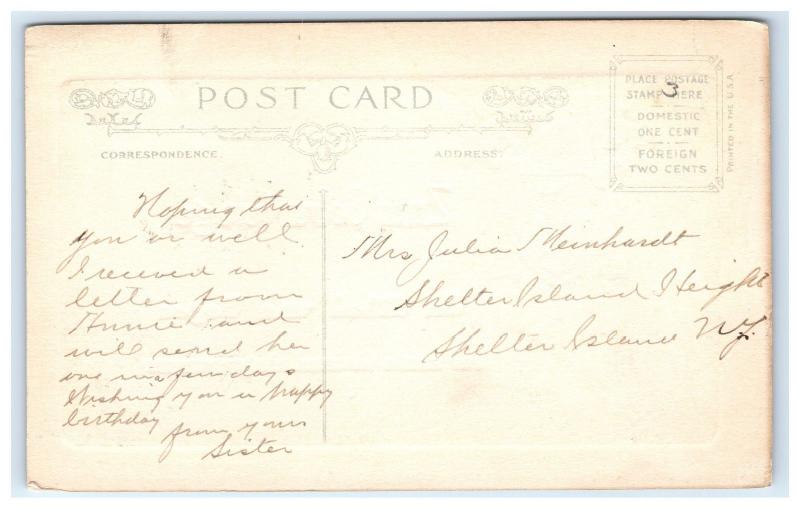 POST CARD
CORRESPONDENCE.
ADDRESS:
PLACE POSTAGE
STAMP HERE
DOMESTIC
ONE CENT
FOREIGN
TWO CENTS
3
PRINTED IN THE U.S.A.
Hoping that
you or well
I received a
letter from
Annie and
will send her
one in a few days
Wishing you a happy
birthday
from your
Sister
Mrs Julia Meinhardt
Shelter Island Height
Shelter Island NY.